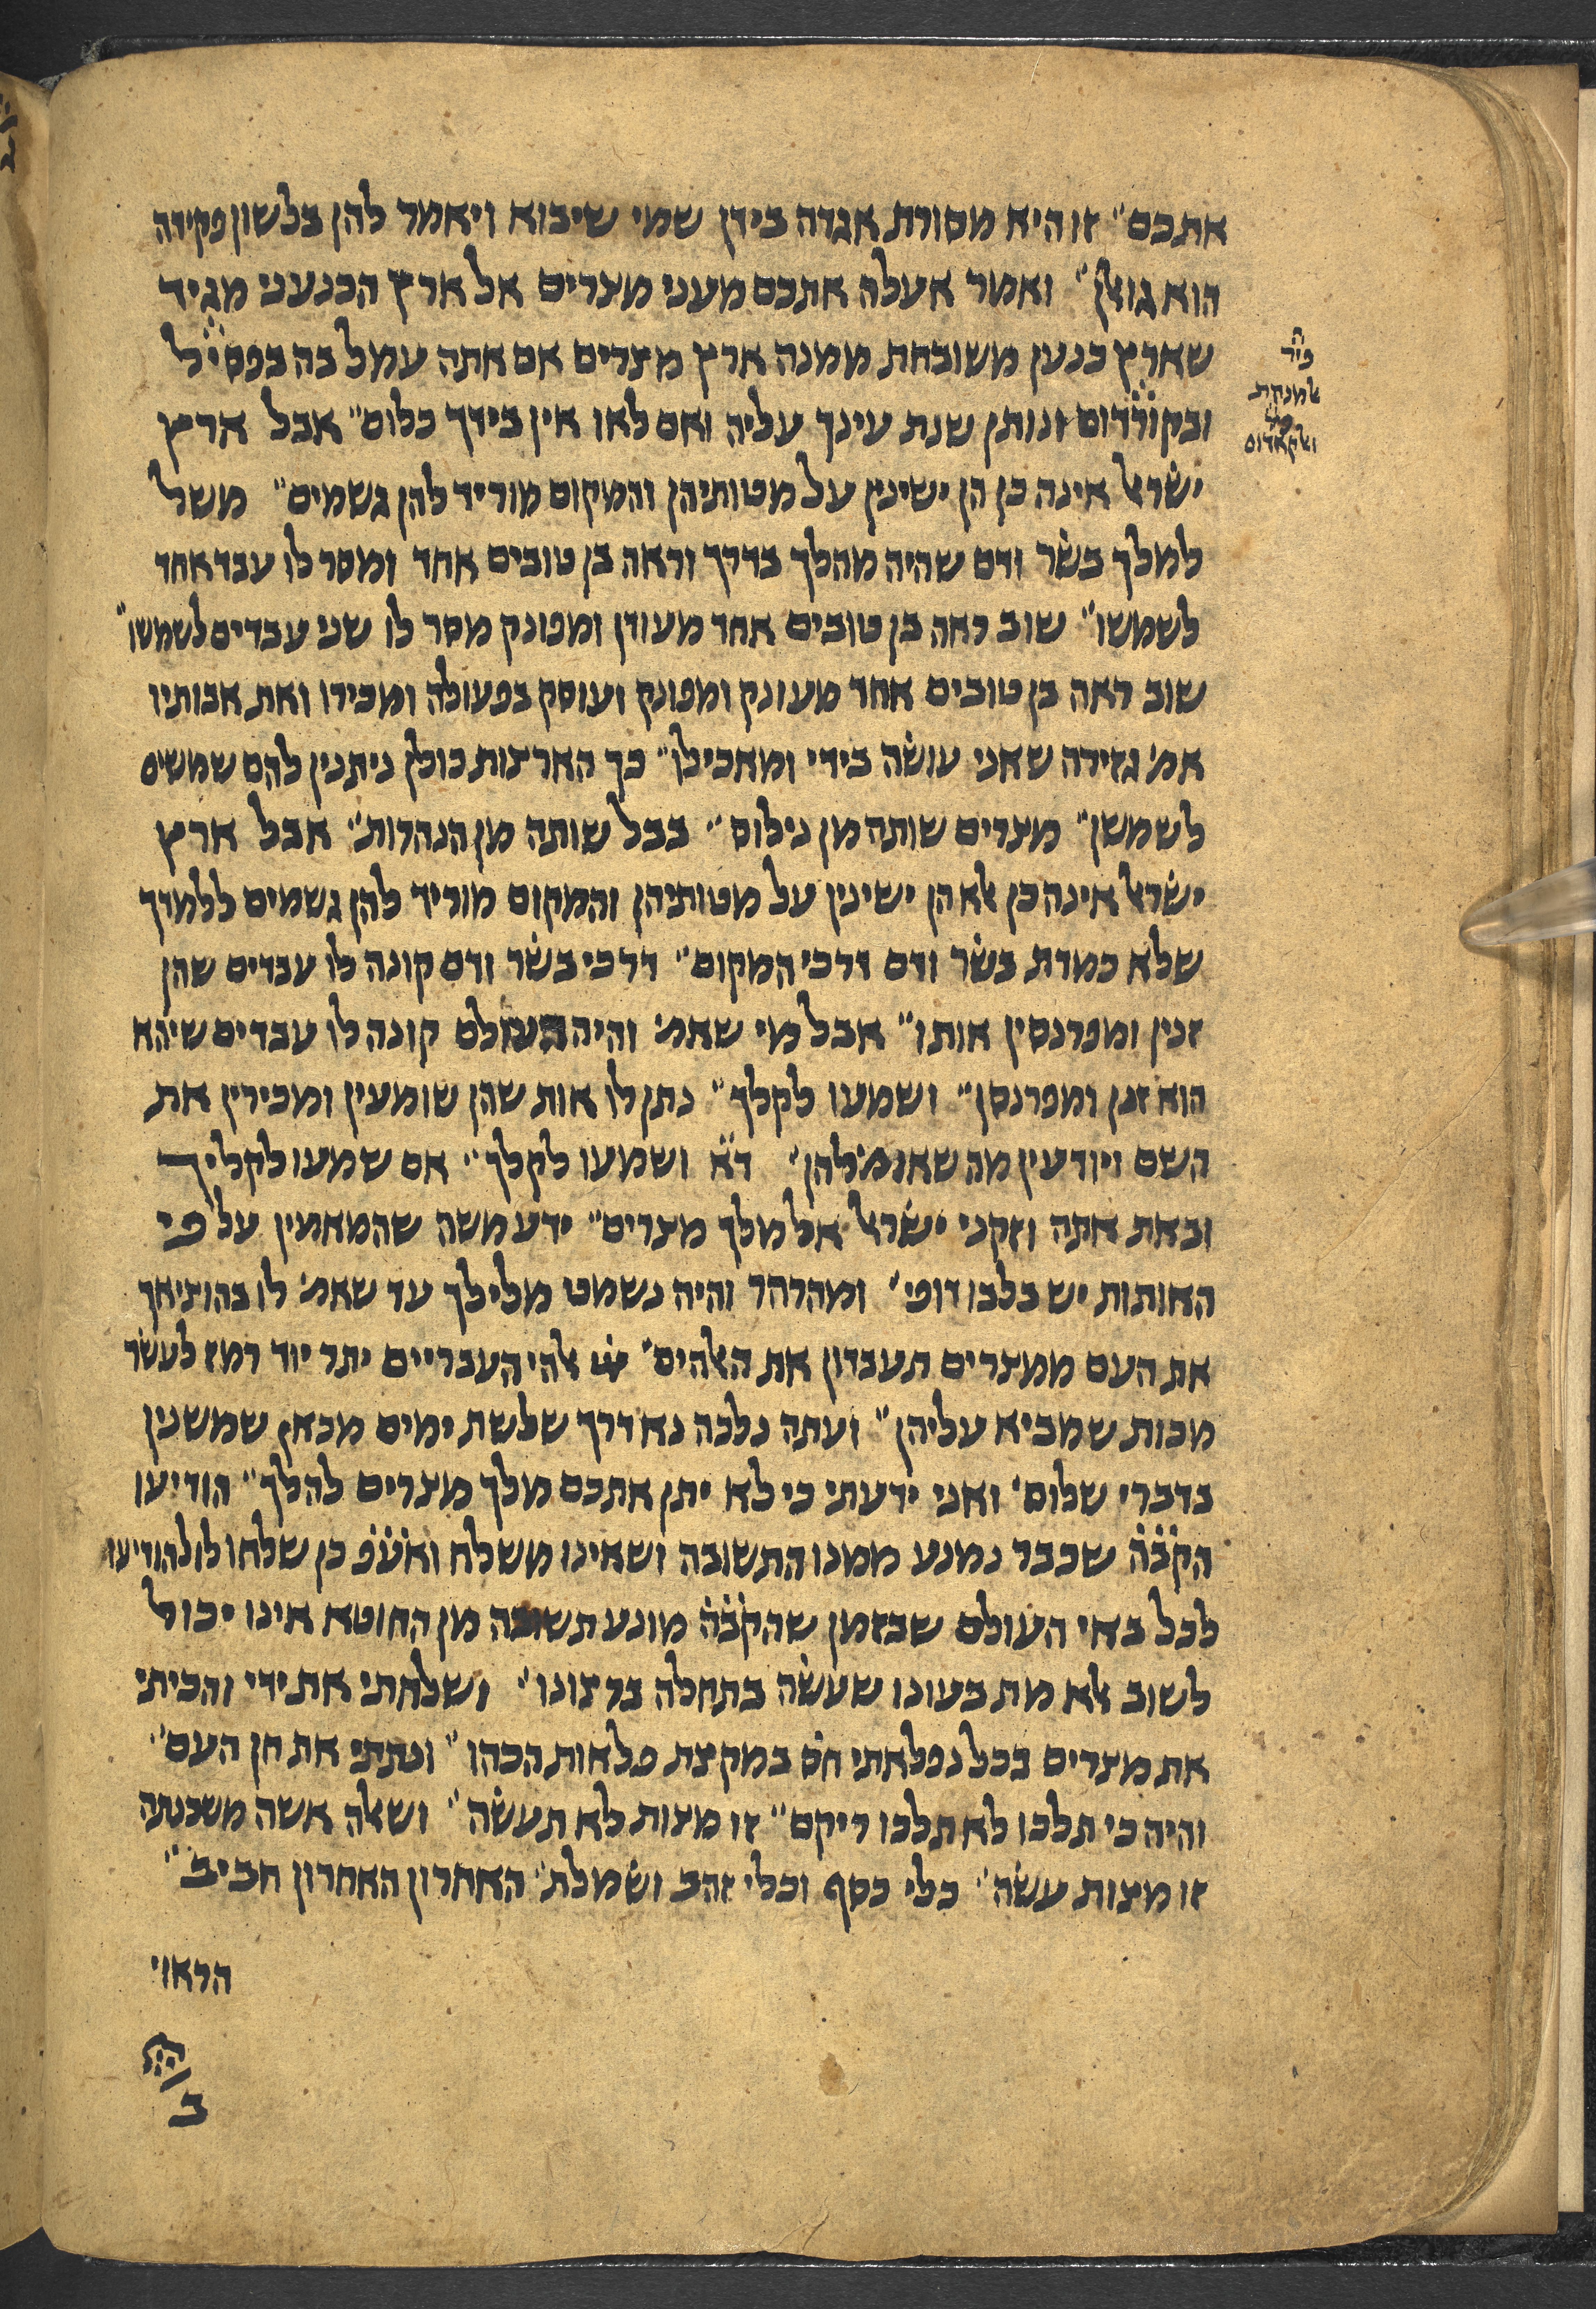 אתכם״ זו היא מסורת אגדה בידן שמי שיבוא ויאמר להן בלשון פקידה
הוא גואלן״ ואמר אעלה אתכם מעני מצרים אל ארץ הכנעני מגיד
שארץ כנען משובחת ממנה ארץ מצרים אם אתה עמל בה בפסיל
ובקורדום ונותן שנת עינך עליה ואם לאו אין בידך כלום״ אבל ארץ
ישראל אינה כן הן ישינין על מטותיהן והמקום מוריד להן גשמים״ משל
למלך בשר ודם שהיה מהלך בדרך וראה בן טובים אחד ומסר לו עבד אחד
לשמשו״ שוב ראה בן טובים אחד מעודן ומפונק מסר לו שני עבדים לשמשו״
שוב ראה בן טובים אחד מעונק ומפונק ועוסק בפעולה ומכירו ואת אבותיו
אמ׳ גזירה שאני עושה בידי ומאכילו״ כך הארצות כולן ניתנין להם שמשים
לשמשן״ מצרים שותה מן נילוס״ בבל שותה מן הנהרות״ אבל ארץ
ישראל אינה כן אלא הן ישינין על מטותיהן והמקום מוריד להן גשמים ללמדך
שלא כמדת בשר ודם דרכי המקום״ דרכי בשר ודם קונה לו עבדים שהן
זנין ומפרנסין אותו״ אבל מי שאמ׳ והיה העולם קונה לו עבדים שיהא
הוא זנן ומפרנסן״ ושמעו לקלך״ נתן לו אות שהן שומעין ומכירין את
השם ויודעין מה שאומ׳ להן׳ ד״א ושמעו לקלך״ אם שמעו לקליך
ובאת אתה וזקני ישראל אל מלך מצרים״ ידע משה שהמאמין על פי
האותות יש בלבו דופי׳ ומהרהר והיה נשמט מלילך עד שאמ׳ לו בהוציאך
את העם ממצרים תעבדון את האלהים׳ אלהי העבריים יתר יוד רמז לעשר
מכות שמביא עליהן״ ועתה נלכה נא דרך שלשת ימים מכאן שמשנין
בדברי שלום׳ ואני ידעתי כי לא יתן אתכם מלך מצרים להלך״ הודיעו
הקבה שכבר נמנע ממנו התשובה ושאינו משלח ואעפ כן שלחו לו להודיעו
לכל באי העולם שבזמן שהקבה מונע תשובה מן החוטא אינו יכול
לשוב אלא מת בעונו שעשה בתחלה ברצונו׳ ושלחתי את ידי והכיתי
את מצרים בכל נפלאתי חס במקצת פלאות הכהו״ ונתתי את חן העם״
והיה כי תלכו לא תלכו ריקם״ זו מצות לא תעשה״ ושאלה אשה משכנתה
זו מצות עשה׳ כלי כסף וכלי זהב ושמלת׳ האחרון האחרון חביב״
הראוי
ב